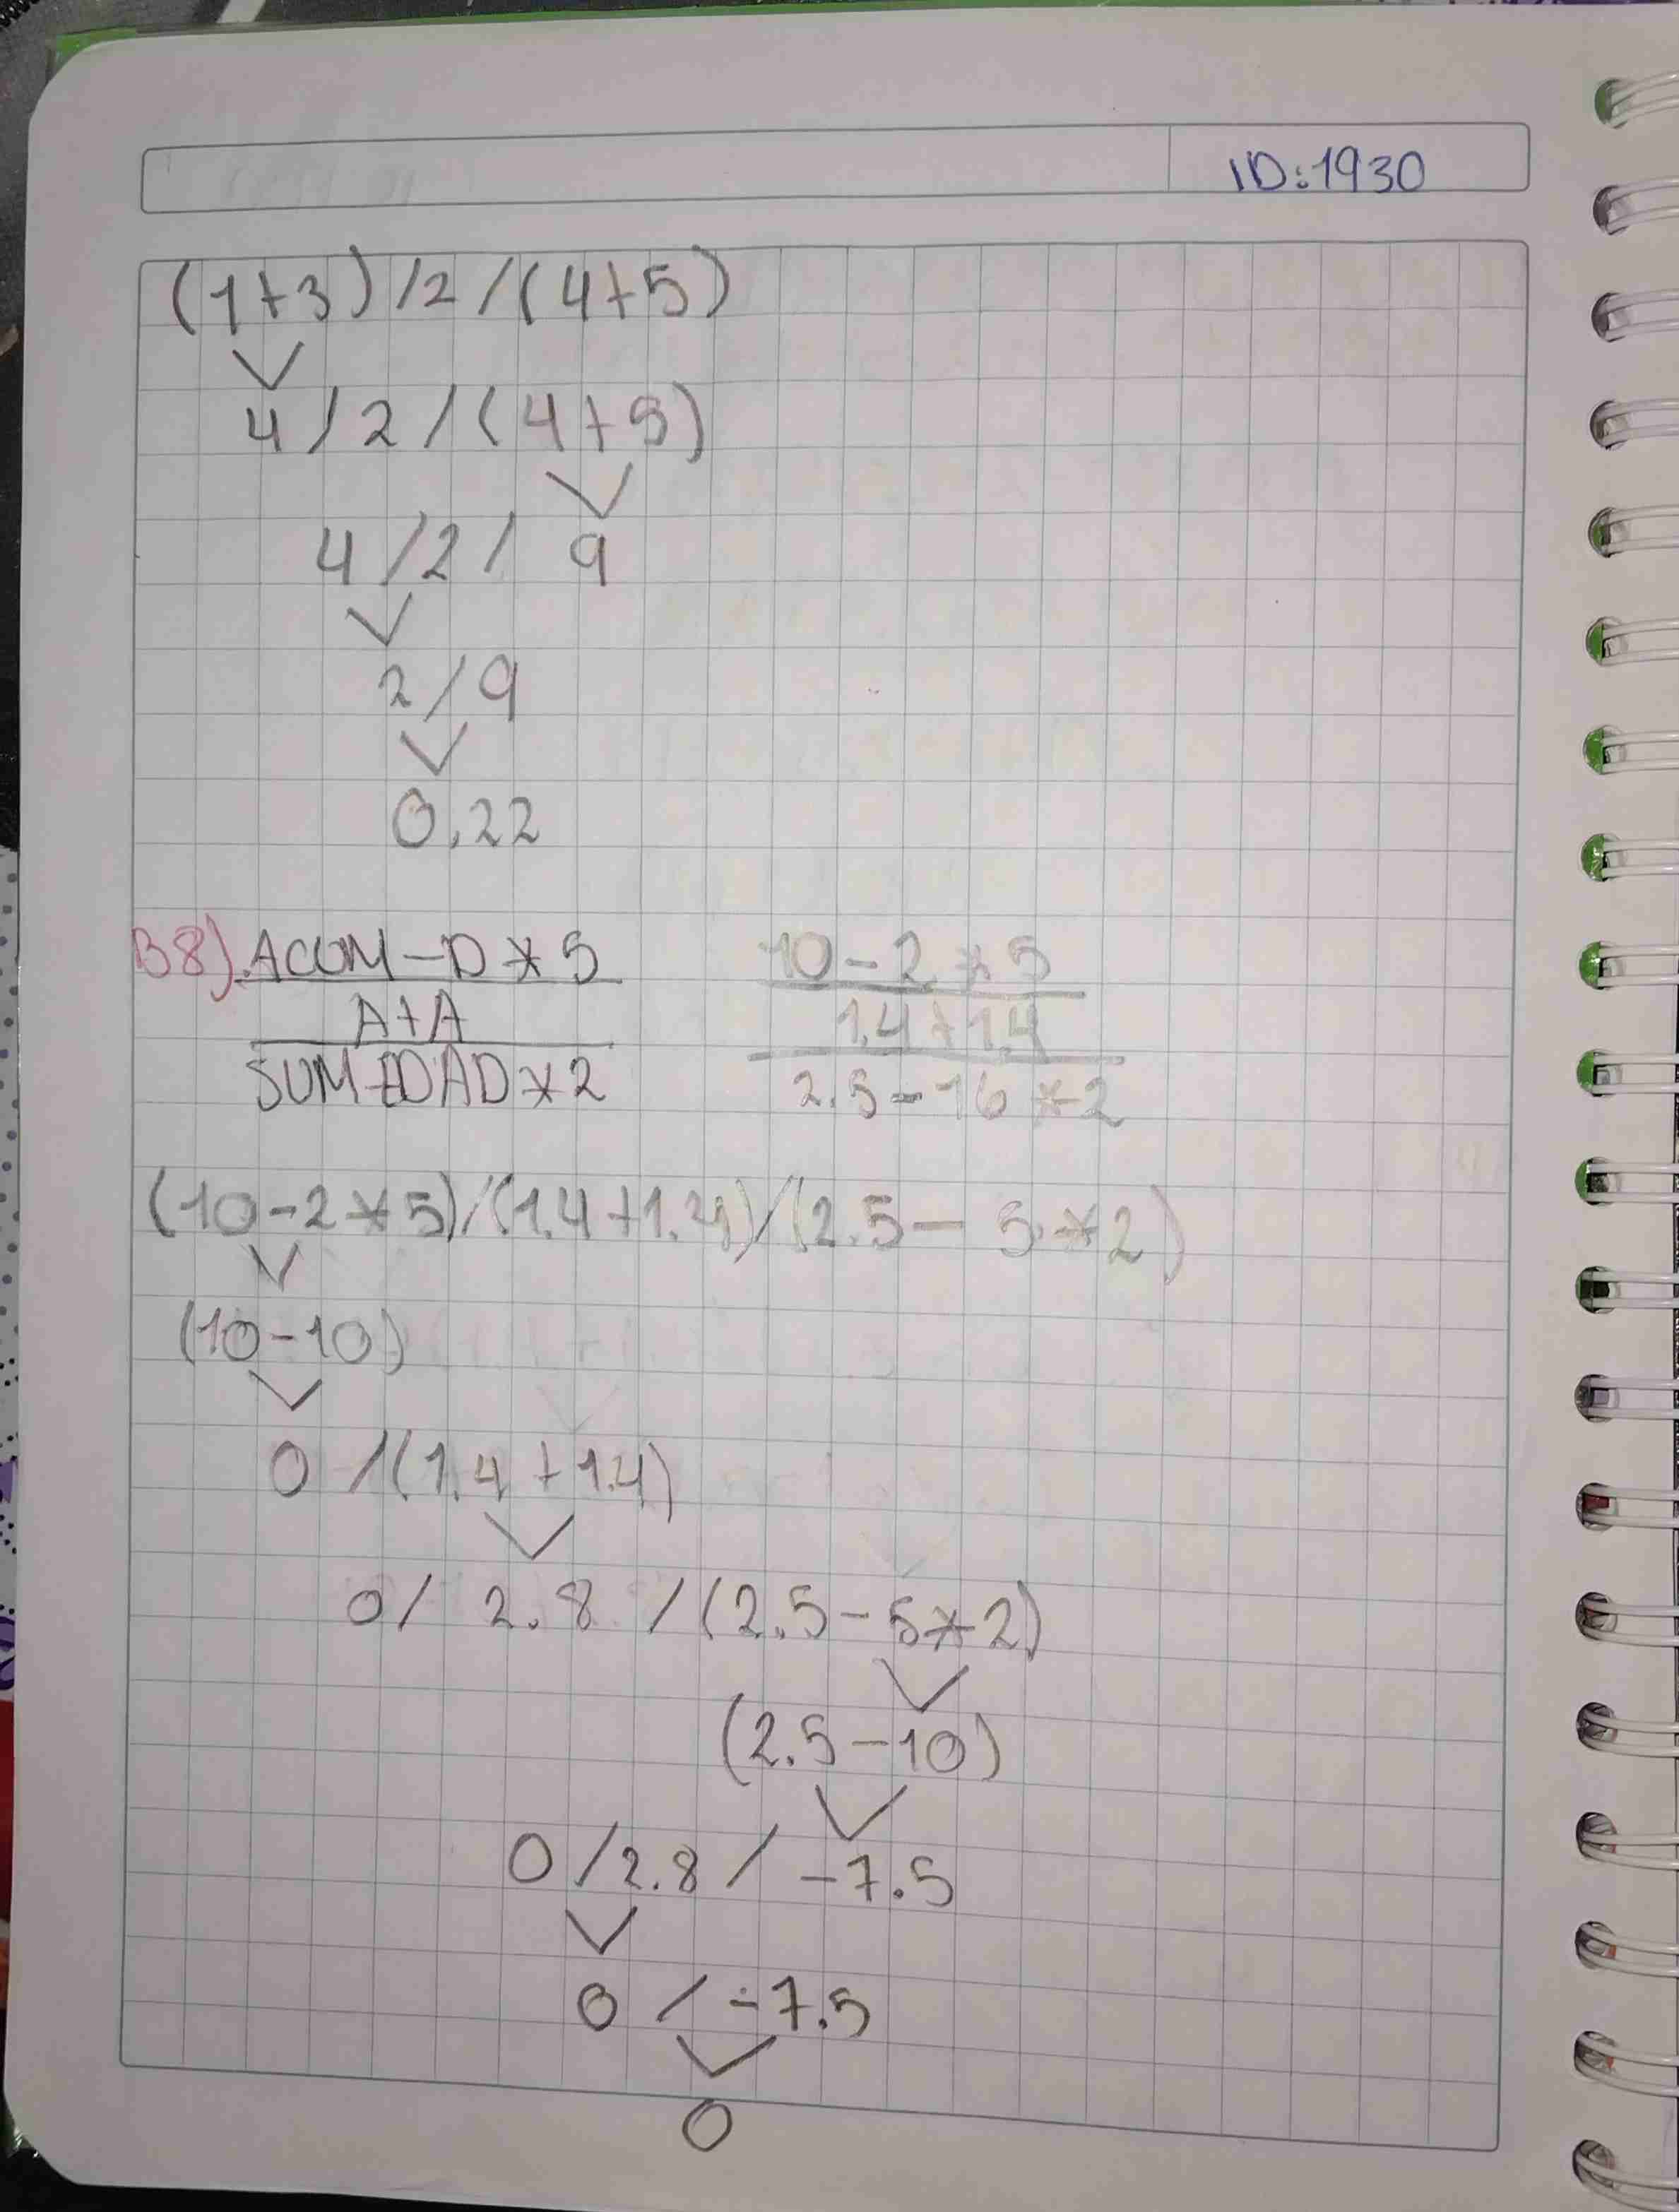 ID:1930
(1+3)/2/(4+5)
4/2/(4+5)
4/2/ 9
2/9
0.22
B8). ACUM-D*5
A+A
SUM-EDAD*2
10-2*5
1.4+1.4
2.5-16*2
(10-2*5)/(1.4+1.4)/(2.5- 5*2)
(10-10)
0/(1.4+1.4)
0/ 2.8 /(2.5-5*2)
(2.5-10)
0/2.8/ -7.5
0/ -7.5
0